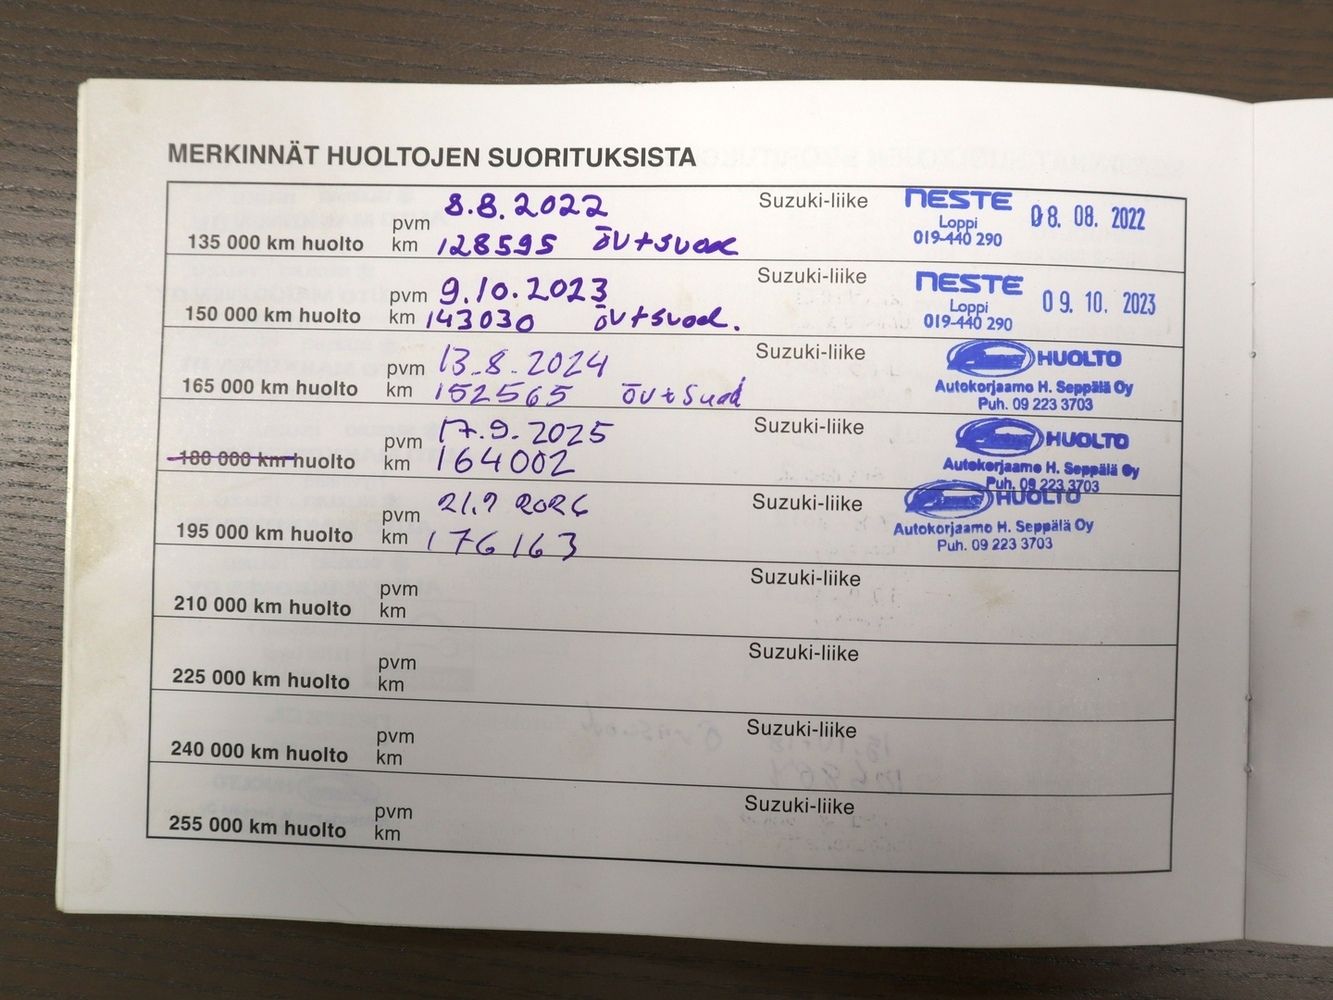 MERKINNÄT HUOLTOJEN SUORITUKSISTA
135 000 km huolto pvm 8.8.2022 Suzuki-liike NESTE 08. 08. 2022
km 128595 ÖV+suod Loppi
019-440 290
150 000 km huolto pvm 9.10.2023 Suzuki-liike NESTE 09. 10. 2023
km 143030 ÖV+suod. Loppi
019-440 290
165 000 km huolto pvm 13.8.2024 Suzuki-liike HUOLTO
km 152565 ÖV+Suod Autokorjaamo H. Seppälä Oy
Puh. 09 223 3703
180 000 km huolto pvm 17.9.2025 Suzuki-liike HUOLTO
km 164002 Autokorjaamo H. Seppälä Oy
Puh. 09 223 3703
195 000 km huolto pvm 2026 Suzuki-liike HUOLTO
km 176163 Autokorjaamo H. Seppälä Oy
Puh. 09 223 3703
210 000 km huolto pvm Suzuki-liike
km
225 000 km huolto pvm Suzuki-liike
km
240 000 km huolto pvm Suzuki-liike
km
255 000 km huolto pvm Suzuki-liike
km